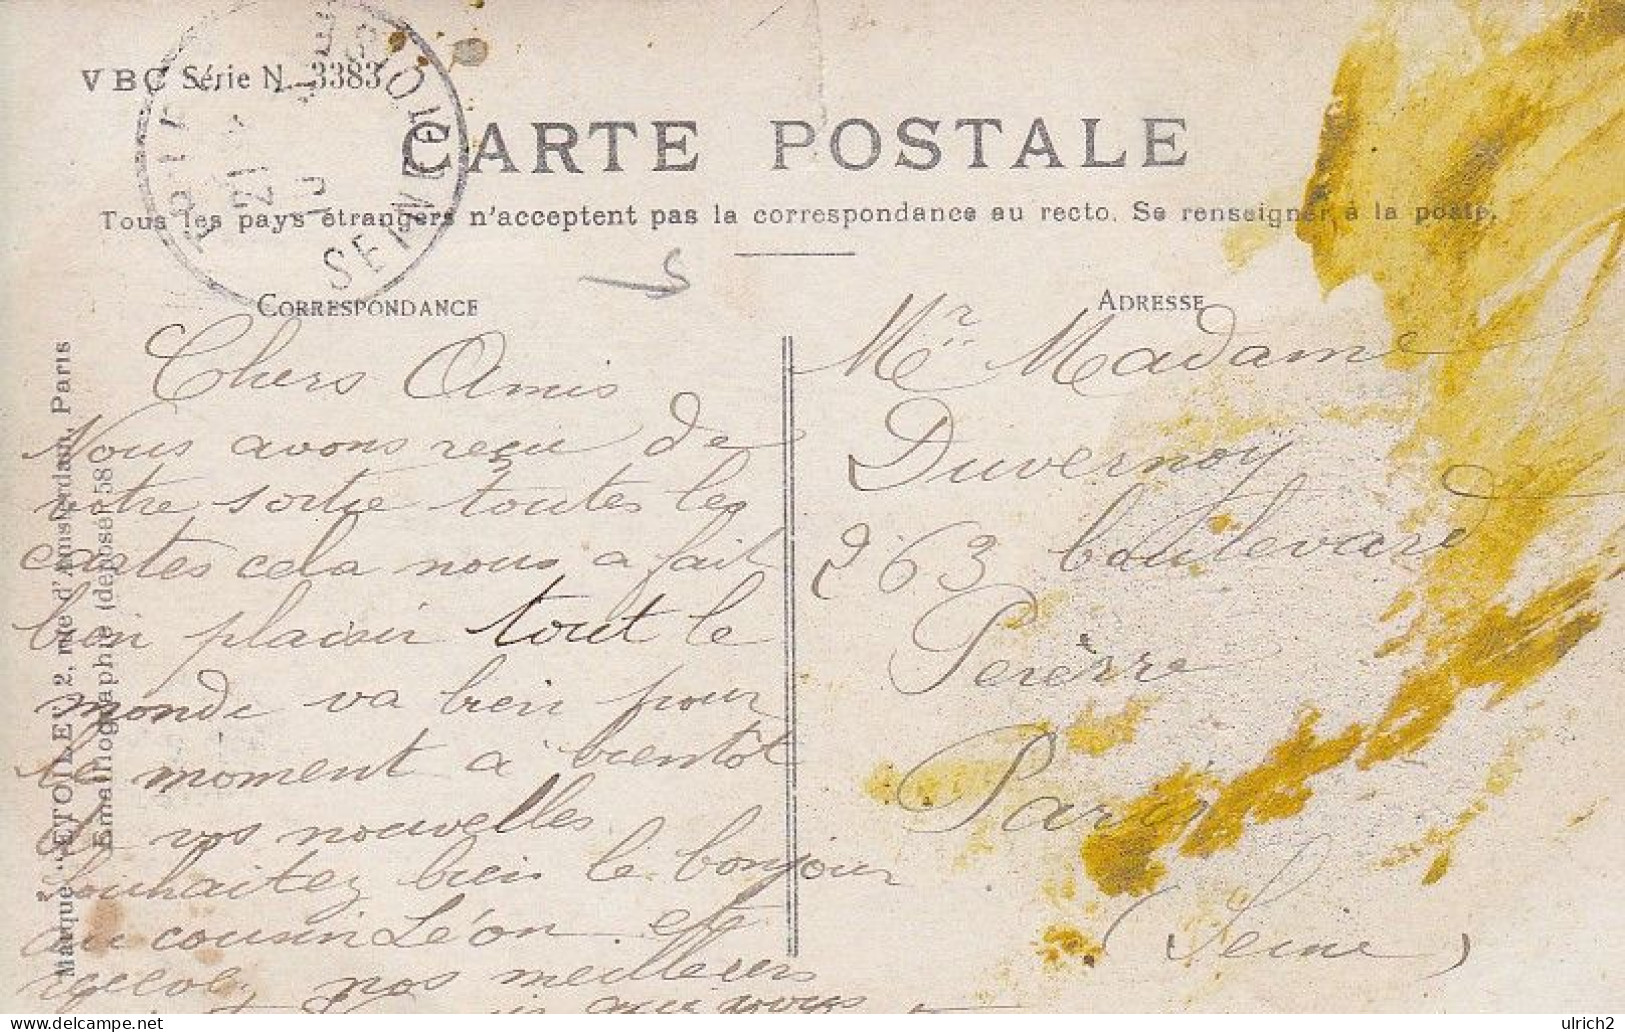 VBC Série N. 3383
CARTE POSTALE
Tous les pays étrangers n'acceptent pas la correspondance au recto. Se renseigner à la poste.
CORRESPONDANCE
Chers Amis
Nous avons reçu de
votre sortie toutes les
cartes cela nous a fait
bien plaisir tout le
monde va bien pour
le moment a bientôt
de vos nouvelles
Souhaitez bien le bonjour
au cousin Léon et
nos meilleers
que vous
ADRESSE
Mr Madame
Duvernoy
263 boulevard
Pereirre
Paris
(Seine)
Marque "ÉTOILE", 2, rue d'Amsterdam, Paris
Emaillographie (déposé) 58
PARIS
SEINE
ulrich2